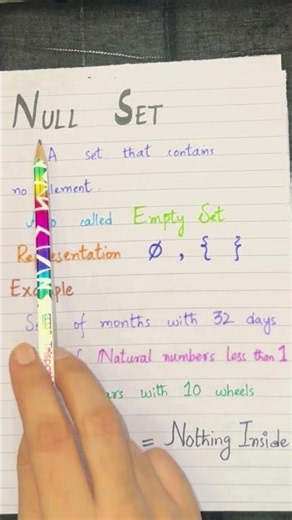 NULL SET
A set that contains
no element.
called Empty Set
Representation ∅ , { }
Example
of months with 32 days
Natural numbers less than 1
with 10 wheels
= Nothing Inside